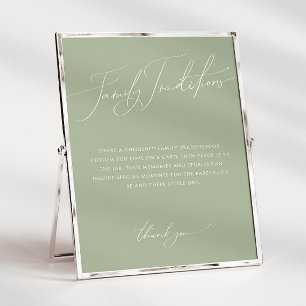 Family Traditions
SHARE A CHERISHED FAMILY TRADITION OR
CUSTOM YOU LOVE ON A CARD, THEN PLACE IT IN
THE JAR. YOUR MEMORIES AND STORIES CAN
INSPIRE SPECIAL MOMENTS FOR THE PARENTS-TO-
BE AND THEIR LITTLE ONE.
thank you